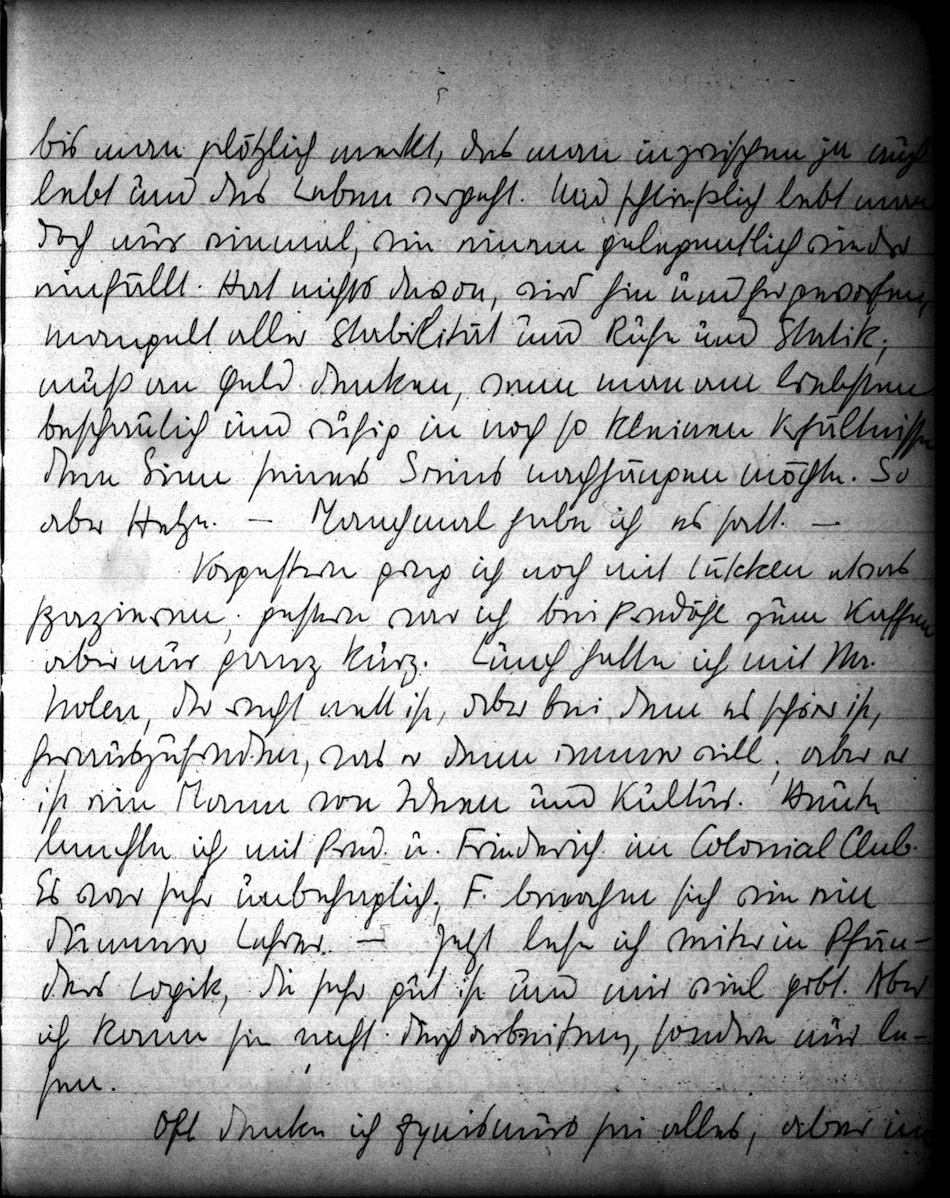 5
bis man plötzlich merkt, das man inzwischen ja auch
lebt und das Leben vergeht. Und schließlich lebt man
doch nur einmal, wie einem gelegentlich wieder
einfällt. Hat nichts davon, wird hin und her geworfen,
mangelt aller Stabilität und Ruhe und Statik,
muß an Geld denken, wenn man am liebsten
beschaulich und ruhig in noch so kleinen Verhältnissen
dem Sinn seines Seins nachhängen möchte. So
aber Hetze. — Manchmal habe ich es satt. —
Vorgestern ging ich noch mit Lütcken etwas
spazieren, gestern war ich bei Predöhl zum Kaffee
aber nur ganz kurz. Lunch hatte ich mit Mr.
Holen, der recht nett ist, aber bei dem es schwer ist,
herauszufinden, was er denn immer will, aber er
ist ein Mann von Ideen und Kultur. Heute
lunchte ich mit Pred. u. Friederich im Colonial Club.
Es war sehr unbehaglich, F. benahm sich wie ein
dummer Lehrer. — Jetzt lese ich weiter in Pfän-
ders Logik, die sehr gut ist und mir viel gibt. Aber
ich kann sie nicht durcharbeiten, sondern nur le-
sen.
Oft denke ich Zynismus sei alles, aber im